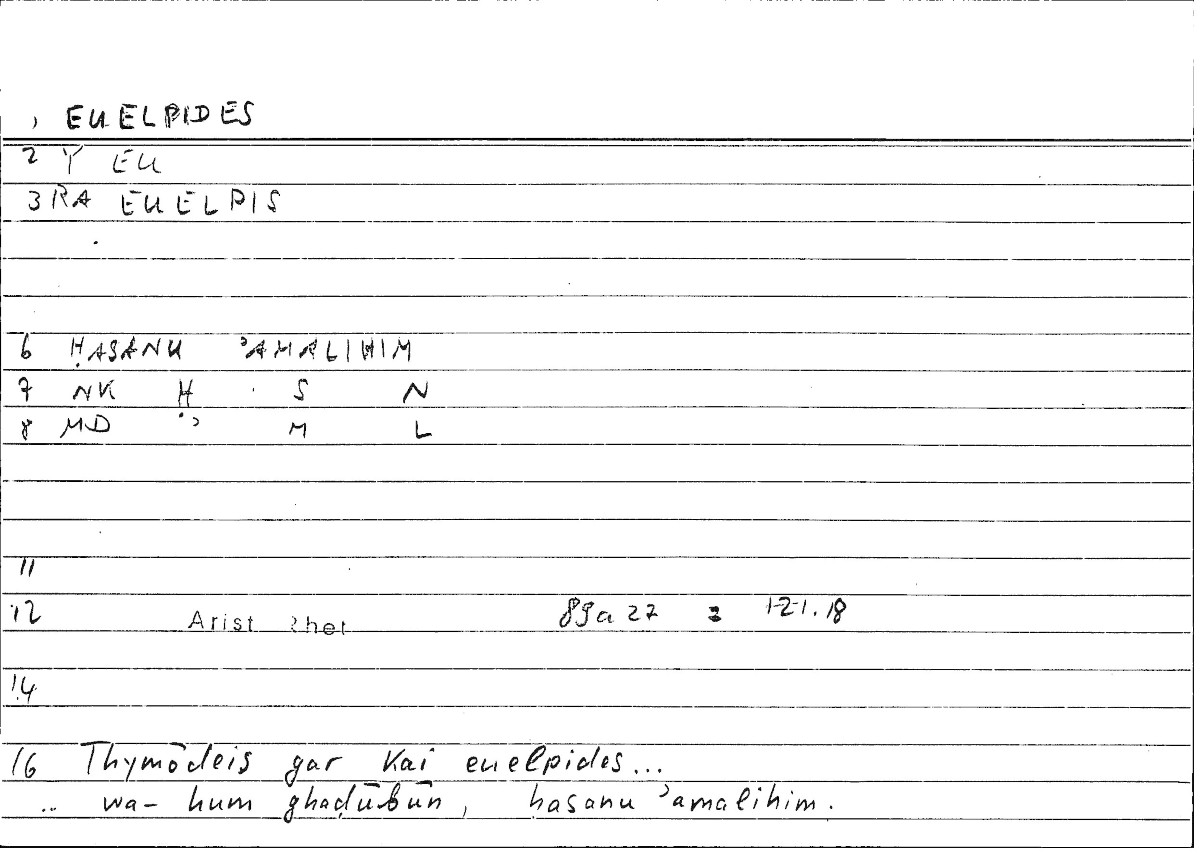 , EUELPIDES
2 Y EU
3 RA EUELPIS
6 ḤASANU ʾAMALIHIM
7 NK Ḥ S N
8 MD ʾ M L
11
12 Arist Rhet 89a27 = 121.18
14
16 Thymōdeis gar kai euelpides...
.. wa- hum ghaḍūbūn, ḥasanu ʾamalihim.